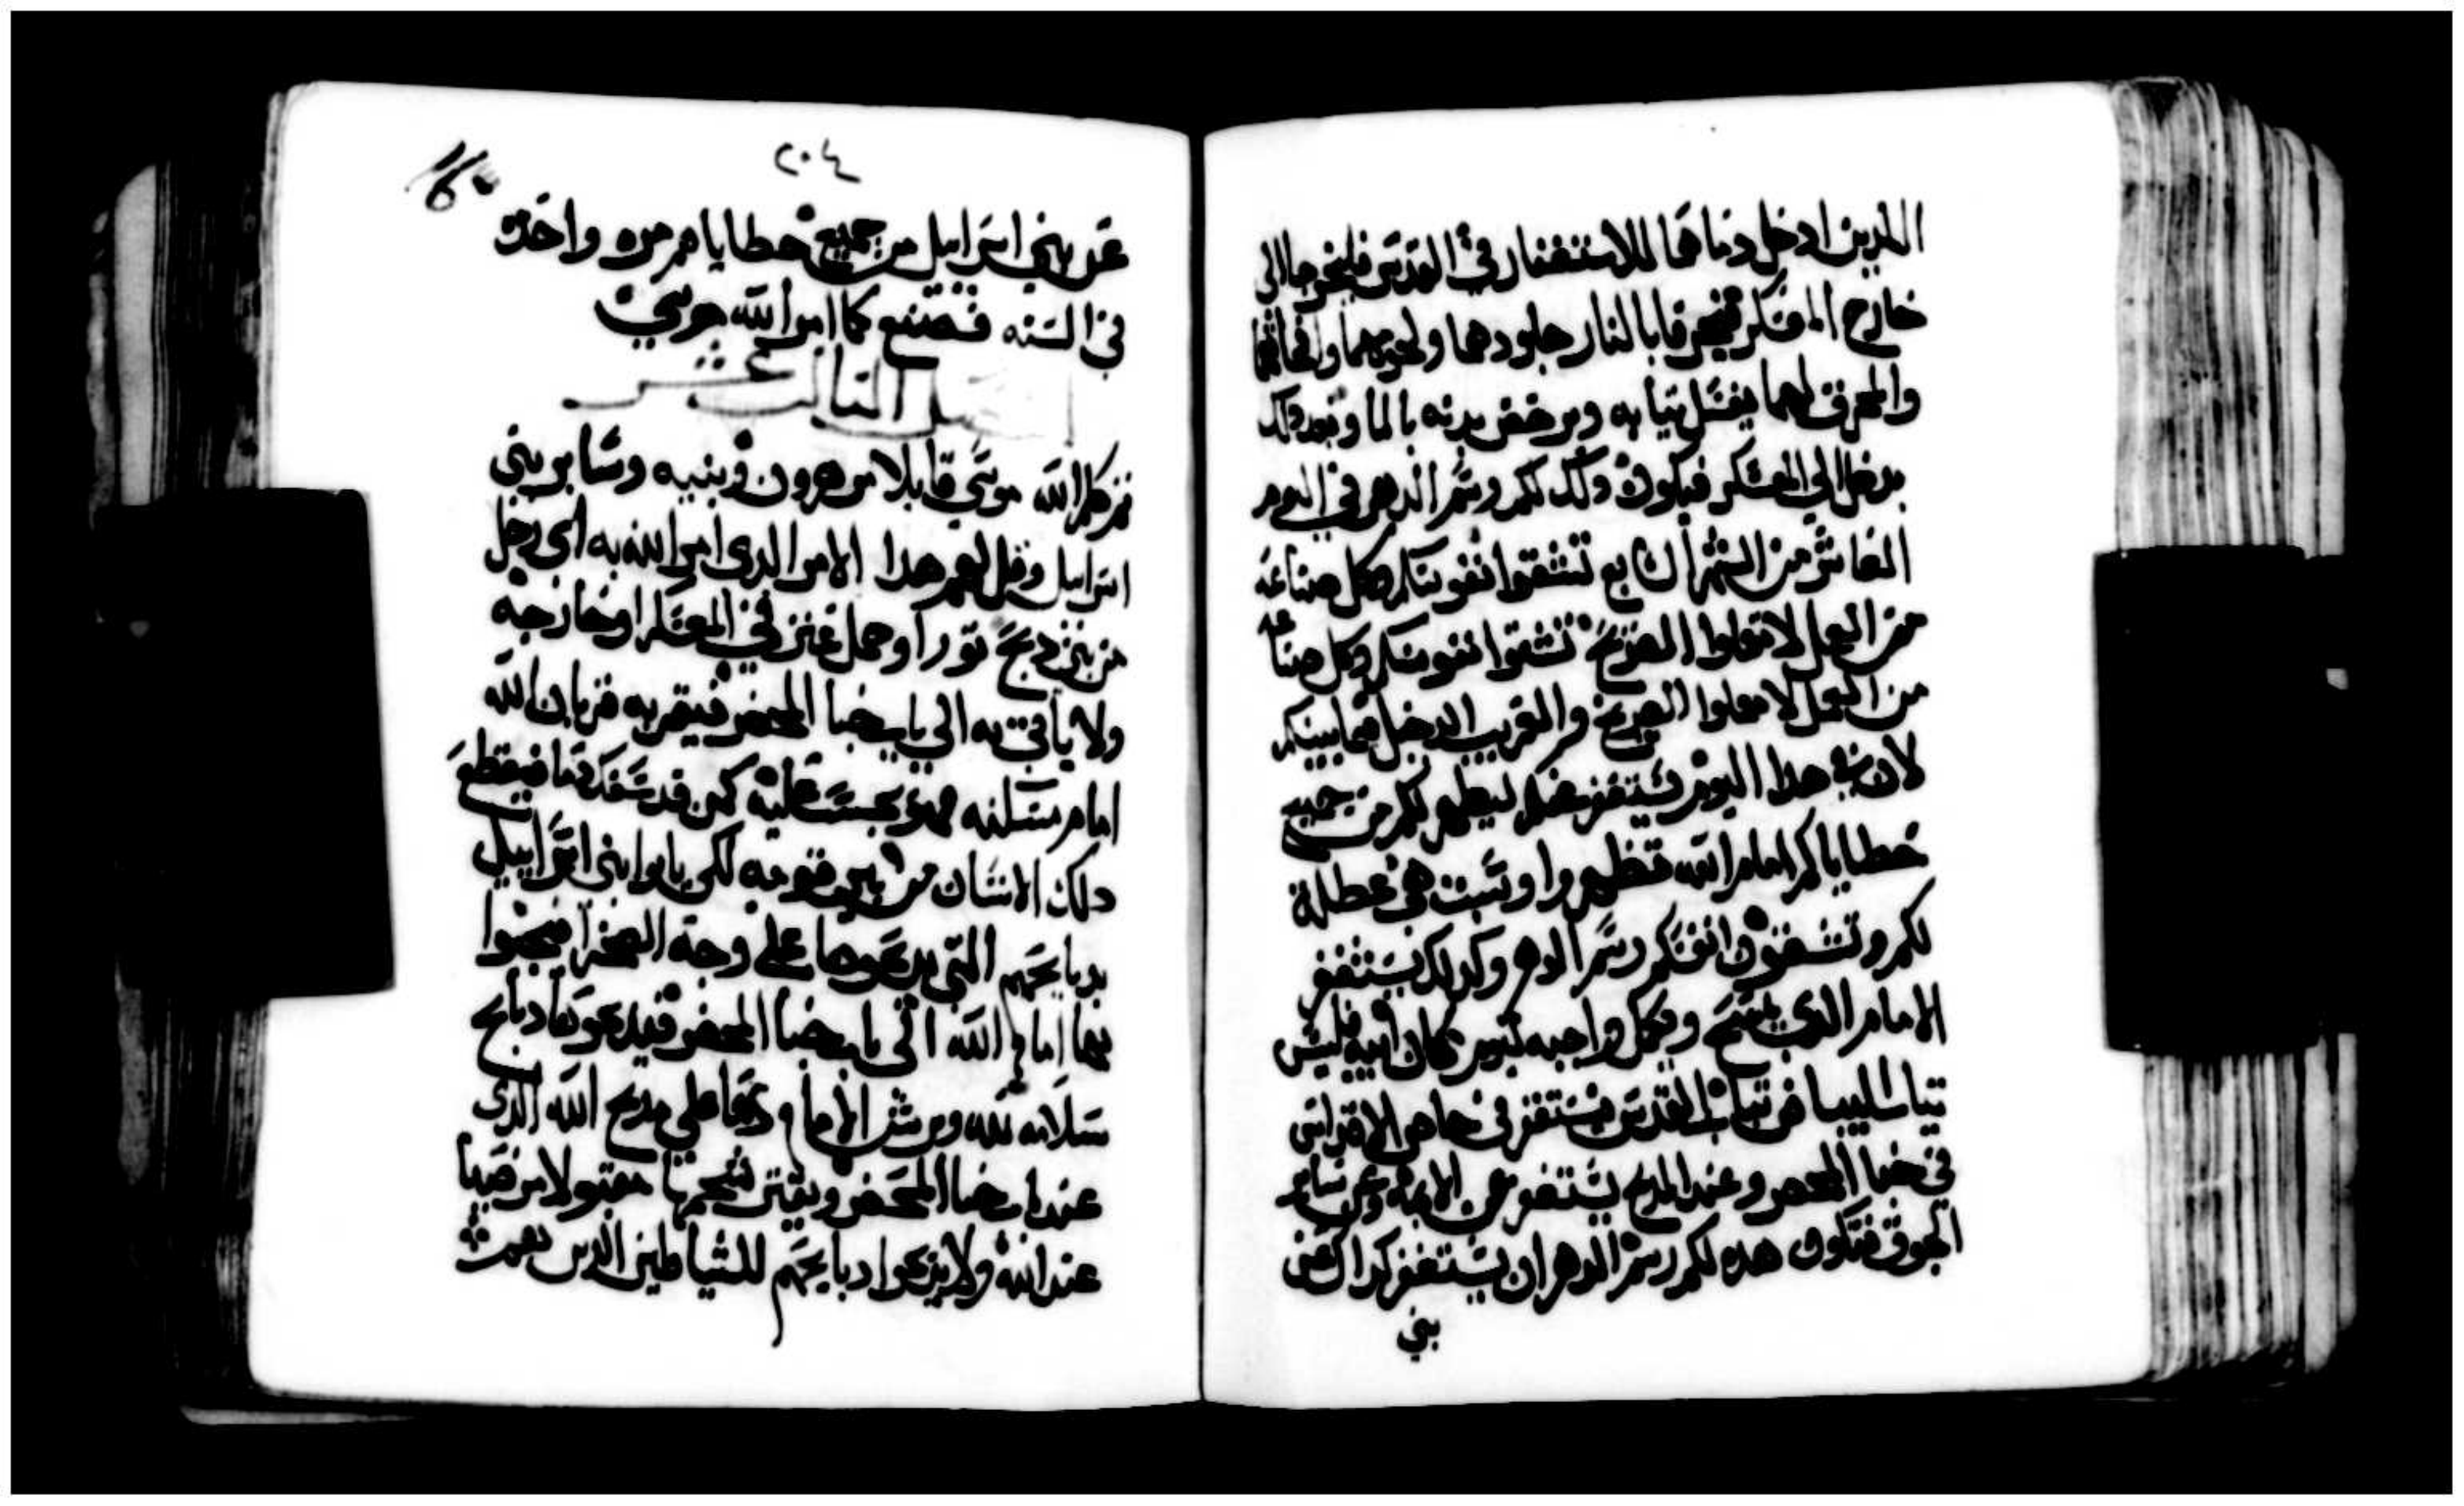 الذين ادخل دماهما للاستغفار في القدس فليخرجا الى
خارج المعسكر فيحرقا بالنار جلودهما ولحومهما وافحاثهما
والمحرق لهما يغسل تيابه ويرحض بدنه بالما وبعد دلك
يدخل الي المعسكر فيكون دلك لكم رسم الدهر في اليوم
العاشر من الشهر السابع تشقوا نفوسكم وكل صناعه
من العمل لا تعملوا الصريح تشقوا نفوسكم وكل صناعه
من العمل لا تعملوا الصريح والقريب الدخيل فيما بينكم
لان في هدا اليوم يستغفر عنكم ليطهركم من جميع
خطاياكم امام الله تطهروا وسبت هي عطلة
لكم وتشقون انفسكم رسم الدهر وكدلك يستغفر
الامام الدي يمسح ويكمل واجبه ليوم مكان ابيه فليلبس
تياب القدس فيستغفر في خاص الاقداس
في خبا المحضر وعند المدبح يستغفر عن الايمه وعن ساير
الجوق فتكون هده لكم رسم الدهر ان يستغفر كداك عن
بني
٢٠٤
عن بني اسراييل من جميع خطاياهم مره واحده
في السنه فصنع كما امر الله موسي
الثالث عشر
ثم كلم الله موسي قايلا مر هرون وبنيه وساير بني
اسراييل وقل لهم هدا الامر الدي امر الله به اي رجل
منهم دبح تورا او حمل او عنز في المعسكر او خارجه
ولا ياتي به الي باب خبا المحضر فيقربه قربان الله
امام مسكنه فهو يحسب عليه كمن قد سفك دما فيقطع
دلك الانسان من بين قومه لكي ياتوا بني اسراييل
بدبايحهم التي يدبحوها على وجه الصحرا فيجوا
بها امام الله الي باب خبا المحضر فيدبحونها دبايح
سلامه لله ويرش الامام دمها علي مدبح الله الدي
عند باب خبا المحضر ويقتر شحمها مقبولا مرضيا
عند الله ولا يدبحوا دبايحهم للشياطين الدين